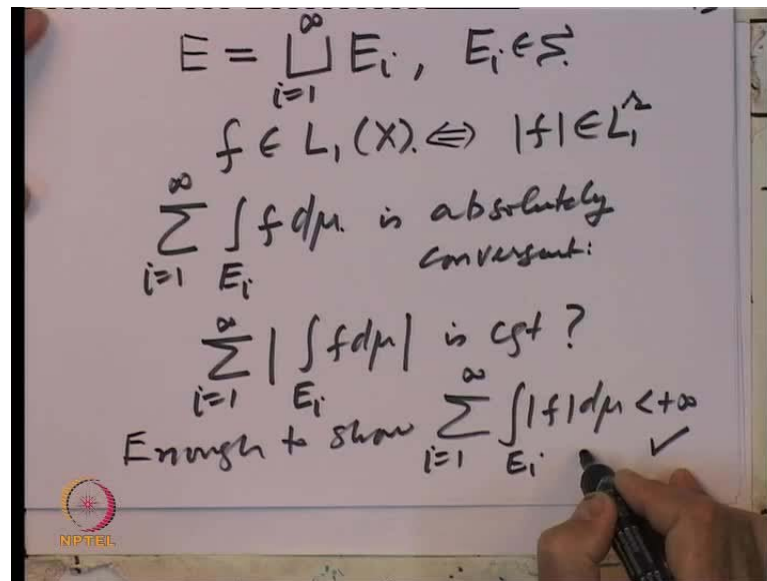 E = ⨆_{i=1}^{∞} E_i, E_i ∈ S.
f ∈ L_1(X). ⇔ |f| ∈ L_1
∑_{i=1}^{∞} ∫_{E_i} f dμ. is absolutely
convergent:
∑_{i=1}^{∞} | ∫_{E_i} f dμ | is cgt ?
Enough to show ∑_{i=1}^{∞} ∫_{E_i} |f| dμ < +∞ ✓
NPTEL